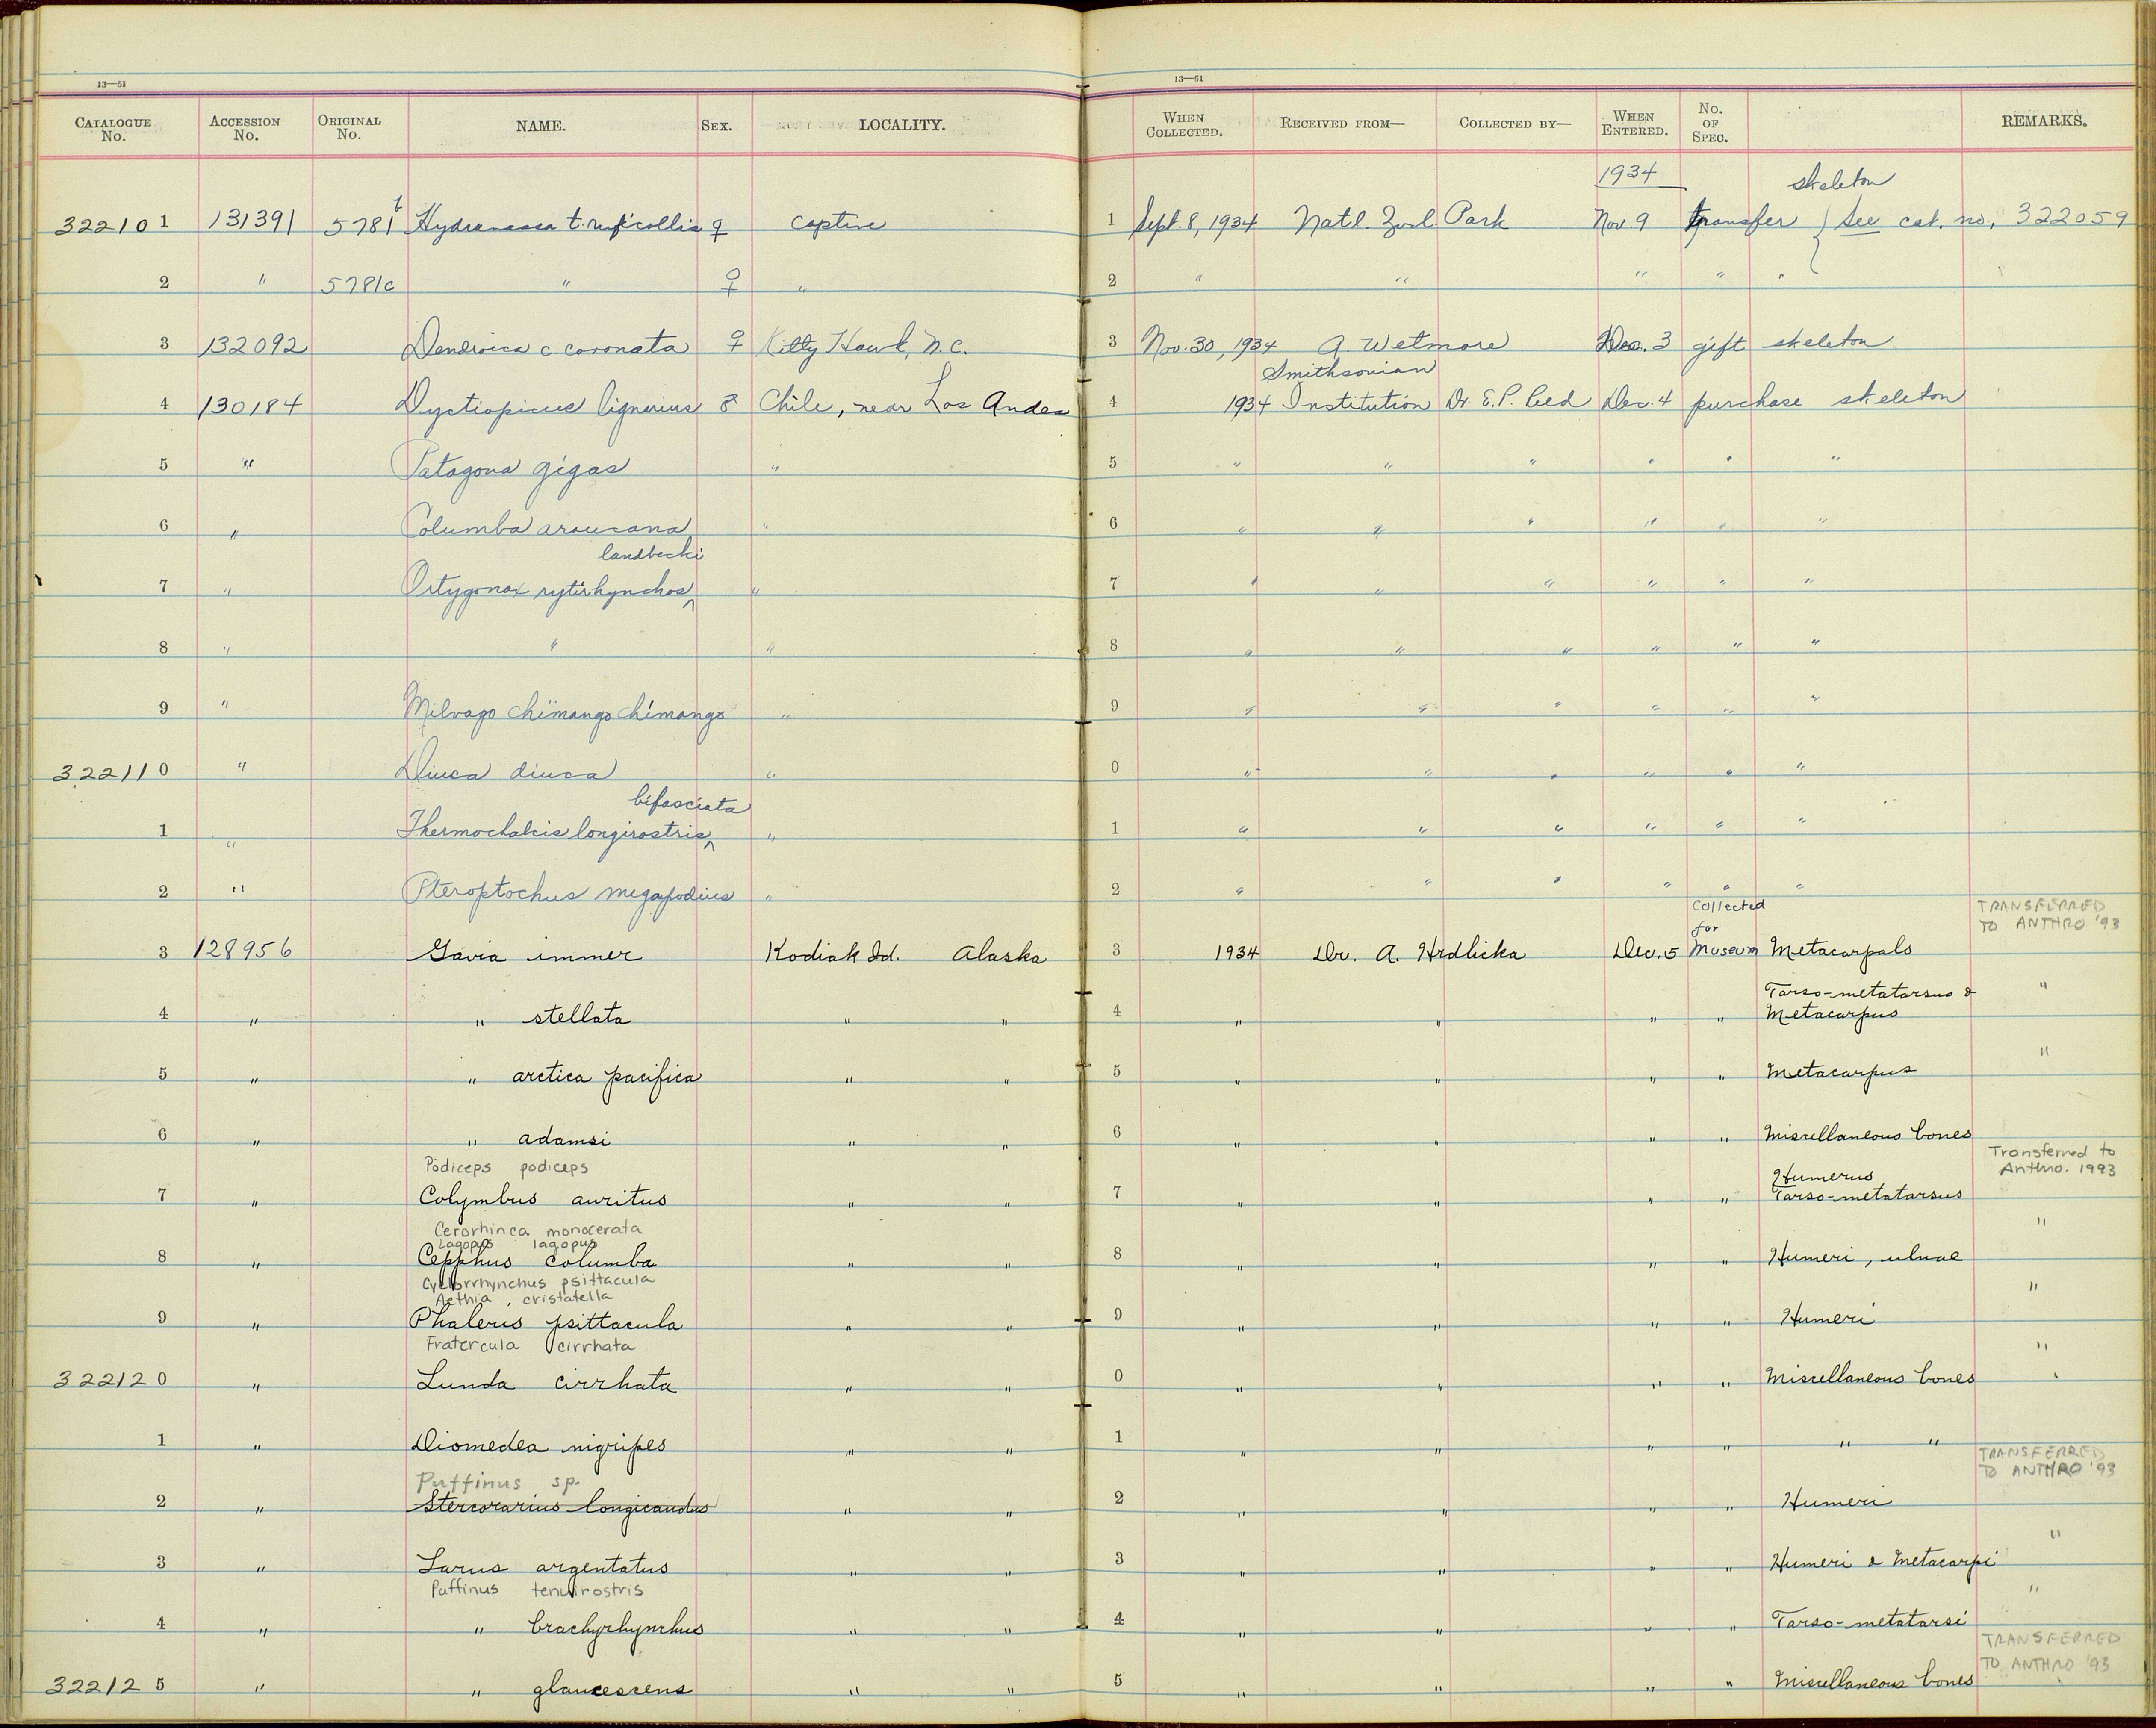 13—51 13—51
CATALOGUE No. ACCESSION No. ORIGINAL No. NAME. SEX. LOCALITY. WHEN COLLECTED. RECEIVED FROM— COLLECTED BY— WHEN ENTERED. No. OF SPEC. REMARKS.
1934 skeleton
322101 131391 5781b Hydranassa t. ruficollis ♀ captive 1 Sept. 8, 1934 Natl. Zool. Park Nov. 9 transfer } See cat. no. 322059
2 " 5781c " ♀ " 2 " " " " "
3 132092 Dendroica c. coronata ♀ Kitty Hawk, N.C. 3 Nov. 30, 1934 A. Wetmore Dec. 3 gift skeleton
Smithsonian
4 130184 Dyctiopicus lignarius Chile, near Los Andes 4 1934 Institution Dr. E.P. Reed Dec. 4 purchase skeleton
5 " Patagona gigas " 5 " " " " " "
6 " Columba araucana " 6 " " " " " "
landbecki
7 " Ortygonax rytirhynchos ^ " 7 " " " " " "
8 " " " 8 " " " " " "
9 " Milvago chimango chimango " 9 " " " " " "
322110 " Diuca diuca " 0 " " " " " "
bifasciata
1 " Thermochalcis longirostris ^ " 1 " " " " " "
2 " Pteroptochus megapodius " 2 " " " " " "
Collected for TRANSFERRED TO ANTHRO '93
3 128956 Gavia immer Kodiak Id. Alaska 3 1934 Dr. A. Hrdlicka Dec. 5 Museum Metacarpals
Tarso-metatarsus & "
4 " " stellata " " 4 " " " " Metacarpus
"
5 " " arctica pacifica " " 5 " " " " Metacarpus
6 " " adamsi " " 6 " " " " Miscellaneous bones
Podiceps podiceps Transferred to Anthro. 1993
Humerus
7 " Colymbus auritus " " 7 " " " " Tarso-metatarsus
Cerorhinca monocerata "
Lagopus lagopus
8 " Cepphus columba " " 8 " " " " Humeri, ulnae
Cyclorrhynchus psittacula "
Aethia cristatella
9 " Phaleris psittacula " " 9 " " " " Humeri
Fratercula cirrhata "
322120 " Lunda cirrhata " " 0 " " " " Miscellaneous bones
1 " Diomedea nigripes " " 1 " " " " " "
Puffinus sp. TRANSFERRED TO ANTHRO '93
2 " Stercorarius longicaudus " " 2 " " " " Humeri
"
3 " Larus argentatus " " 3 " " " " Humeri & Metacarpi
Puffinus tenuirostris "
4 " " brachyrhynchus " " 4 " " " " Tarso-metatarsi
TRANSFERRED TO ANTHRO '93
322125 " " glaucescens " " 5 " " " " Miscellaneous bones